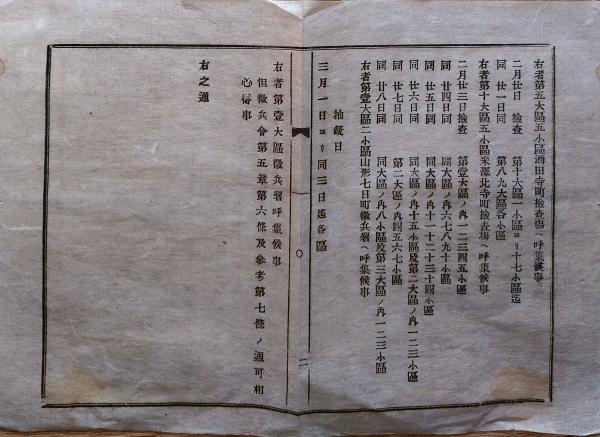 右者第五大區五小區酒田寺町撿査場ヘ呼集候事
二月廿日　撿査　第十六區一小區ヨリ十七小區迄
同　廿一日同　第八九大區各小區
右者第十大區五小區米澤北寺町撿査場ヘ呼集候事
二月廿三日撿査　第壹大區ノ內一二三四五小區
同　廿四日同　同大區ノ內六七八九十小區
同　廿五日同　同大區ノ內十一十二十三十四小區
同　廿六日同　同大區ノ內十五小區及第二大區ノ內一二三小區
同　廿七日同　第二大區ノ內四五六七小區
同　廿八日同　同大區ノ內八小區及第三大區ノ內一二三小區
右者第壹大區二小區山形七日町徵兵署ヘ呼集候事
抽籤日
三月一日ヨリ同三日迄各區
二
右者第壹大區徵兵署呼集候事
但徵兵令第五章第六條及參考第七條ノ通可相
心得事
右之通